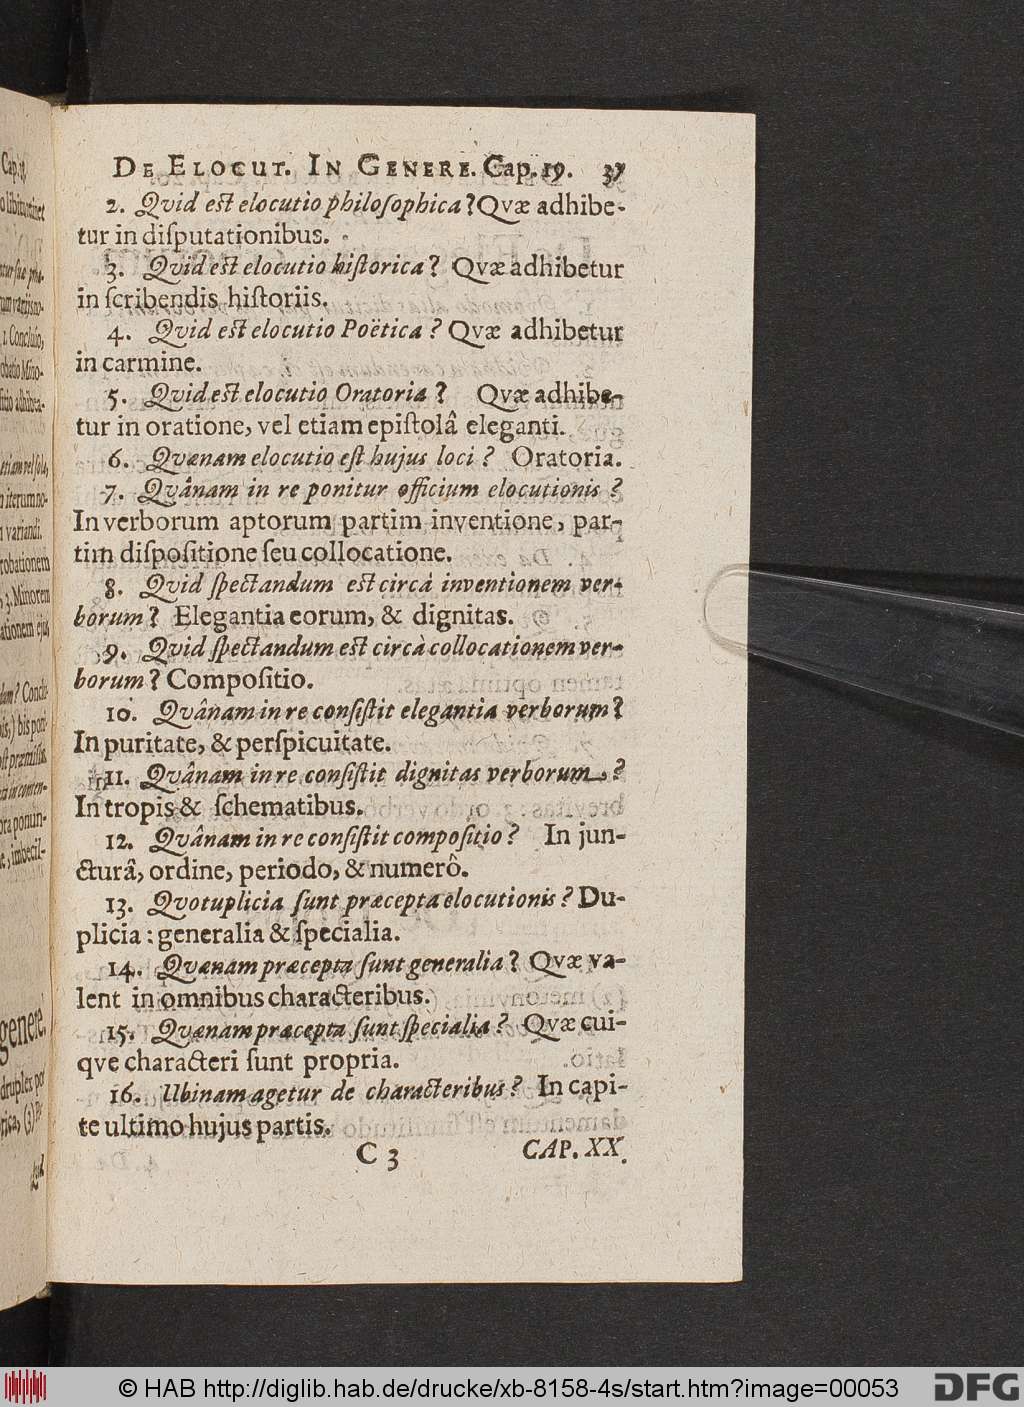 DE ELOCUT. IN GENERE. Cap. 19. 37
2. Qvid est elocutio philoſophica? Qvæ adhibe-
tur in diſputationibus.
3. Qvid est elocutio hiſtorica? Qvæ adhibetur
in ſcribendis hiſtoriis.
4. Qvid est elocutio Poëtica? Qvæ adhibetur
in carmine.
5. Qvid est elocutio Oratoria? Qvæ adhibe-
tur in oratione, vel etiam epiſtolâ eleganti.
6. Qvænam elocutio eſt hujus loci? Oratoria.
7. Qvânam in re ponitur officium elocutionis?
In verborum aptorum partim inventione, par-
tim diſpoſitione ſeu collocatione.
8. Qvid ſpectandum est circà inventionem ver-
borum? Elegantia eorum, & dignitas.
9. Qvid ſpectandum est circà collocationem ver-
borum? Compoſitio.
10. Qvânam in re conſiſtit elegantia verborum?
In puritate, & perſpicuitate.
11. Qvânam in re conſiſtit dignitas verborum?
In tropis & ſchematibus.
12. Qvânam in re conſiſtit compoſitio? In jun-
cturâ, ordine, periodo, & numerô.
13. Qvotuplicia ſunt præcepta elocutionis? Du-
plicia: generalia & ſpecialia.
14. Qvænam præcepta ſunt generalia? Qvæ va-
lent in omnibus characteribus.
15. Qvænam præcepta ſunt ſpecialia? Qvæ cui-
qve characteri ſunt propria.
16. Ubinam agetur de characteribus? In capi-
te ultimo hujus partis.
C 3 CAP. XX.
© HAB http://diglib.hab.de/drucke/xb-8158-4s/start.htm?image=00053
DFG